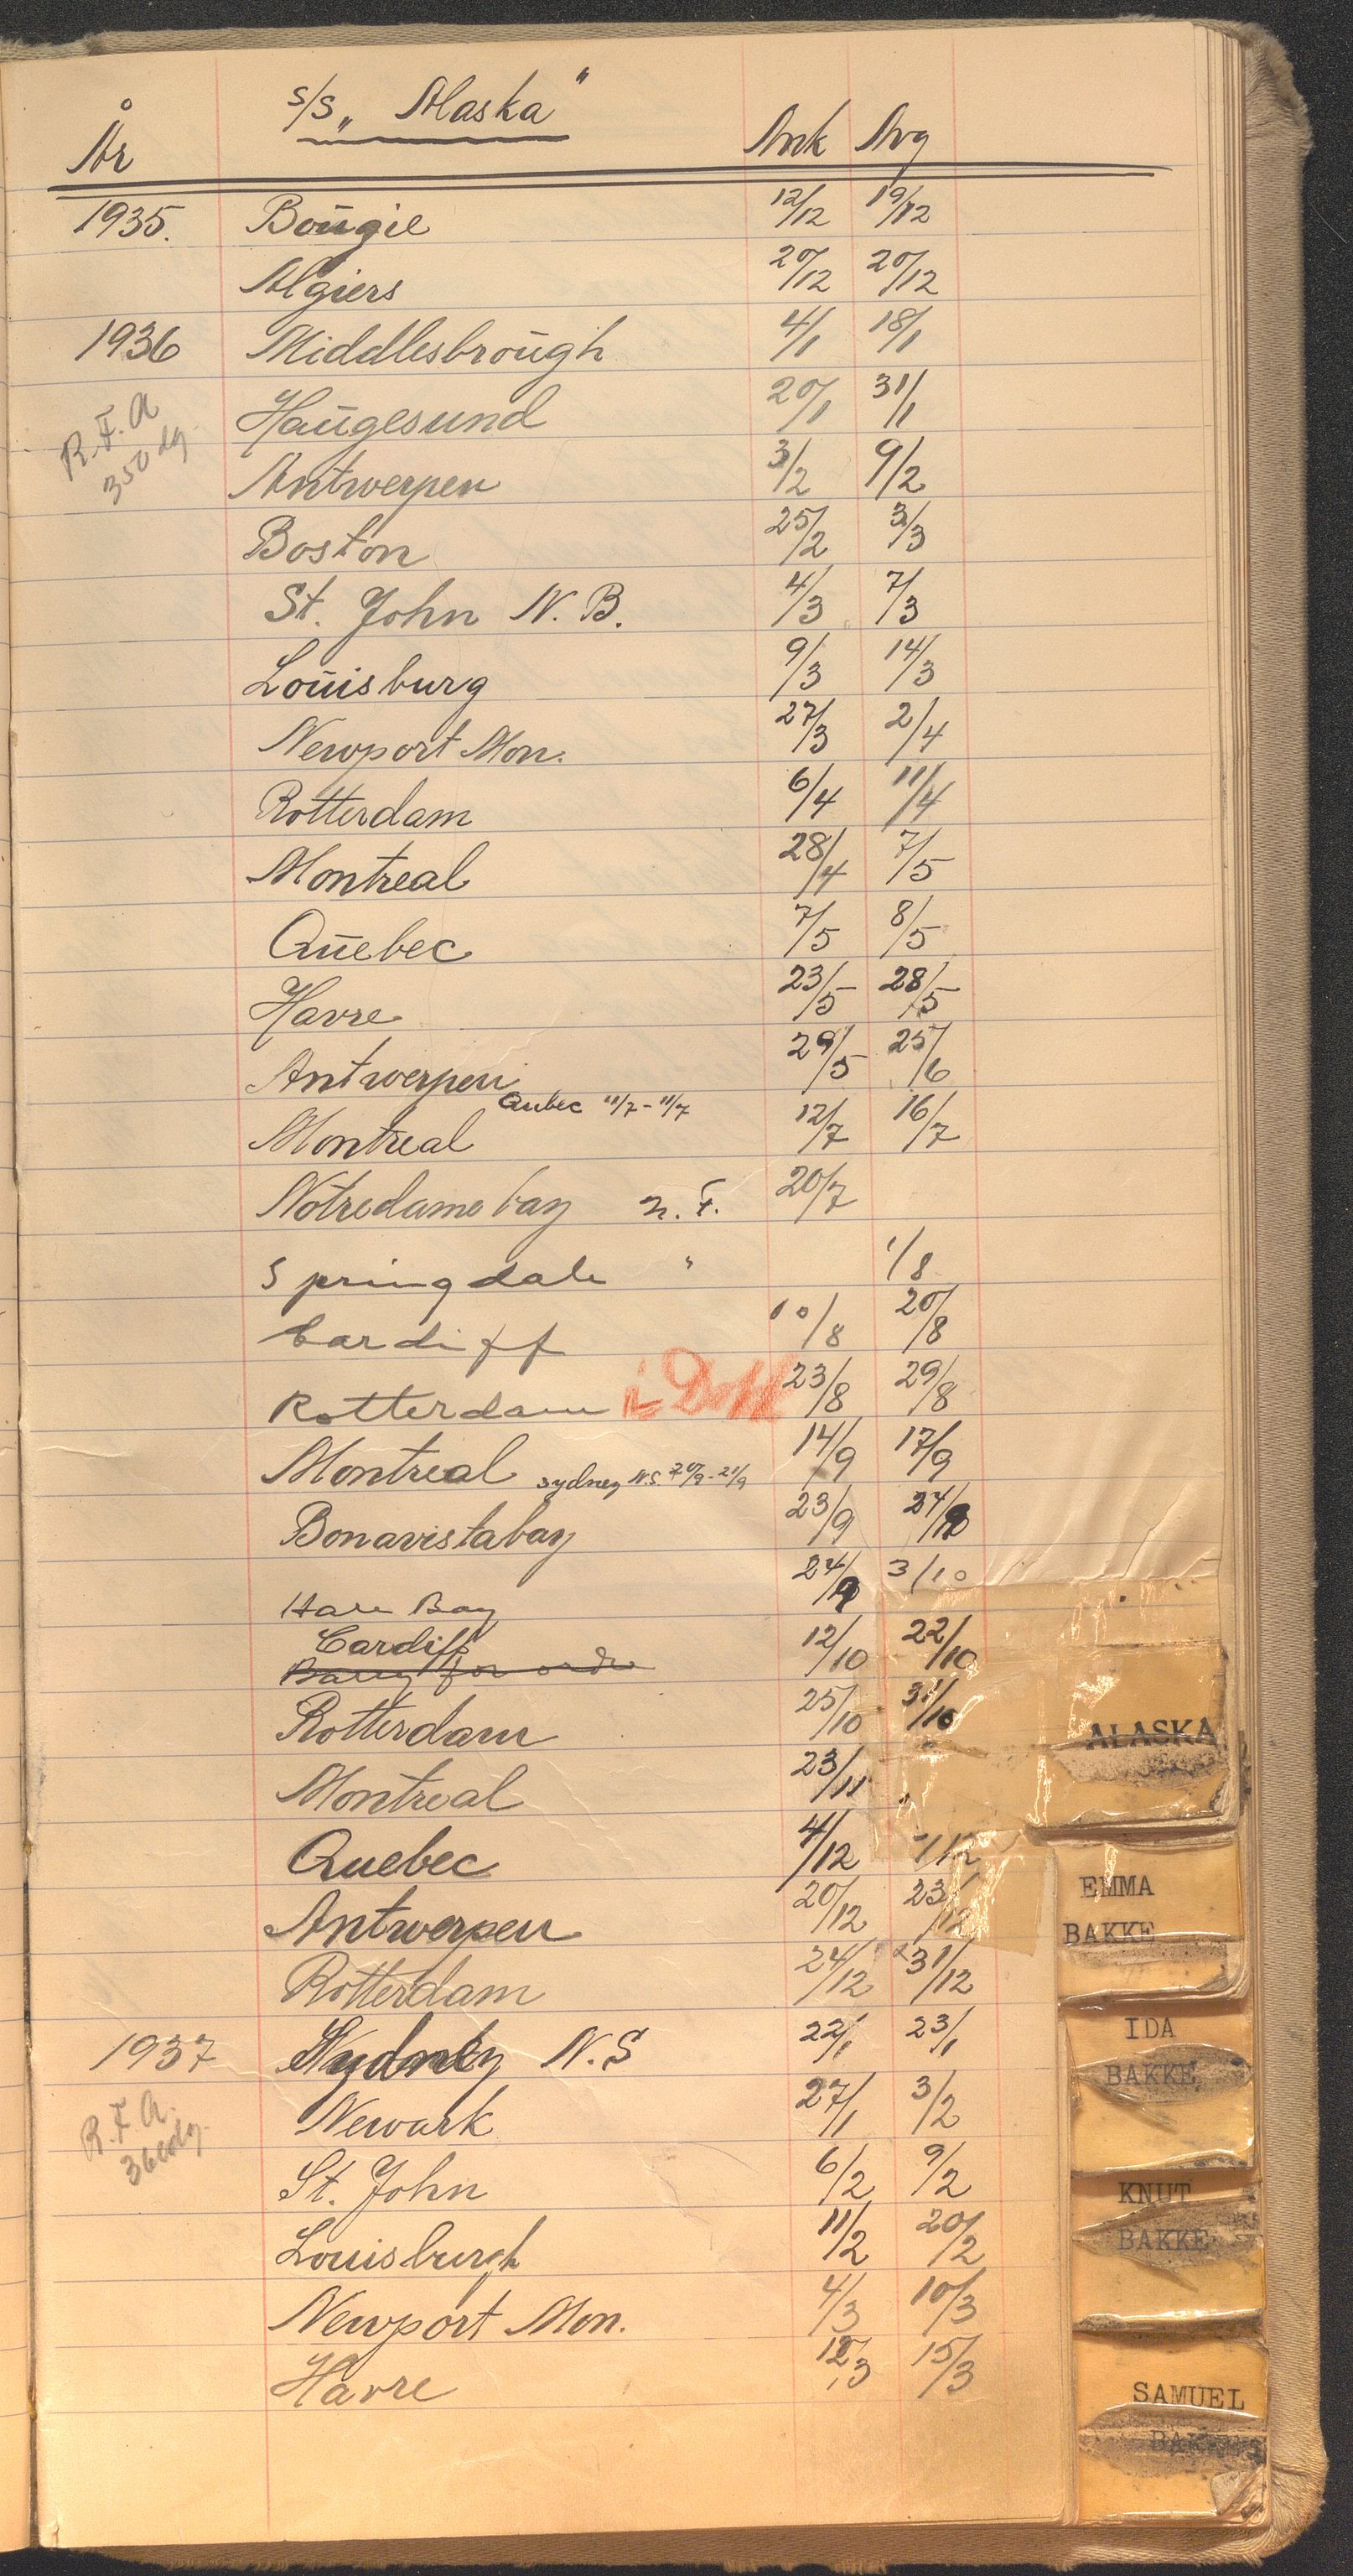 s/s „Alaska"
År Ank Avg
1935. Boūgie 12/12 19/12
Algiers 20/12 20/12
1936 Middlesbroūgh 4/1 18/1
R.F.A Haūgesund 20/1 31/1
350 dg. Antwerpen 3/2 9/2
Boston 25/2 3/3
St. John N.B. 4/3 7/3
Loūisburg 9/3 14/3
Newport Mon. 27/3 2/4
Rotterdam 6/4 11/4
Montreal 28/4 7/5
Qūebec 7/5 8/5
Havre 23/5 28/5
Antwerpen 29/5 25/6
Qubec 11/7-11/7
Montreal 12/7 16/7
Notredame bay n.F. 20/7
Springdale " 1/8
Cardiff 10/8 20/8
Rotterdam i Dokk 23/8 29/8
Montreal Sydney N.S. 20/9-21/9 14/9 17/9
Bonavistabay 23/9 24/9
Hare Bay 24/9 3/10
Cardiff 12/10 22/10
Barry for order
Rotterdam 25/10 31/10
ALASKA
Montreal 23/11
Quebec 4/12 /12
EMMA
BAKKE
Antwerpen 20/12 23/12
Rotterdam 24/12 31/12
1937 Sydney N.S 22/1 23/1
IDA
BAKKE
R.F.A. Newark 27/1 3/2
St. John 6/2 9/2
KNUT
BAKKE
Louisburgh 11/2 20/2
Newport Mon. 4/3 10/3
Havre 12/3 15/3
SAMUEL
BAKKE